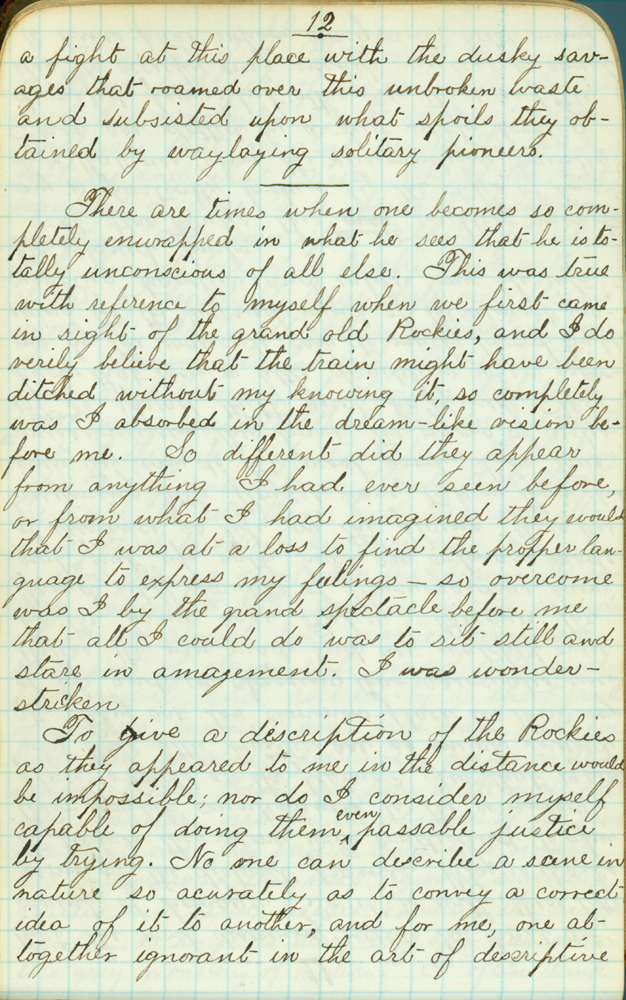 12
a fight at this place with the dusky sav-
ages that roamed over this unbroken waste
and subsisted upon what spoils they ob-
tained by waylaying solitary pioneers.
There are times when one becomes so com-
pletely enwrapped in what he sees, that he is to-
tally unconscious of all else. This was true
with reference to myself when we first came
in sight of the grand old Rockies, and I do
verily believe that the train might have been
ditched without my knowing it, so completely
was I absorbed in the dream-like vision be-
fore me. So different did they appear
from anything I had ever seen before,
or from what I had imagined they would
that I was at a loss to find the propper lan-
guage to express my feelings - so overcome
was I by the grand spectacle before me
that all I could do was to sit still and
stare in amazement. I was wonder-
stricken
To give a discription of the Rockies
as they appeared to me in the distance would
be impossible; nor do I consider myself
capable of doing them, even passable justice
by trying. No one can describe a scene in
nature so acurately as to convey a correct
idea of it to another, and for me, one al-
together ignorant in the art of descriptive